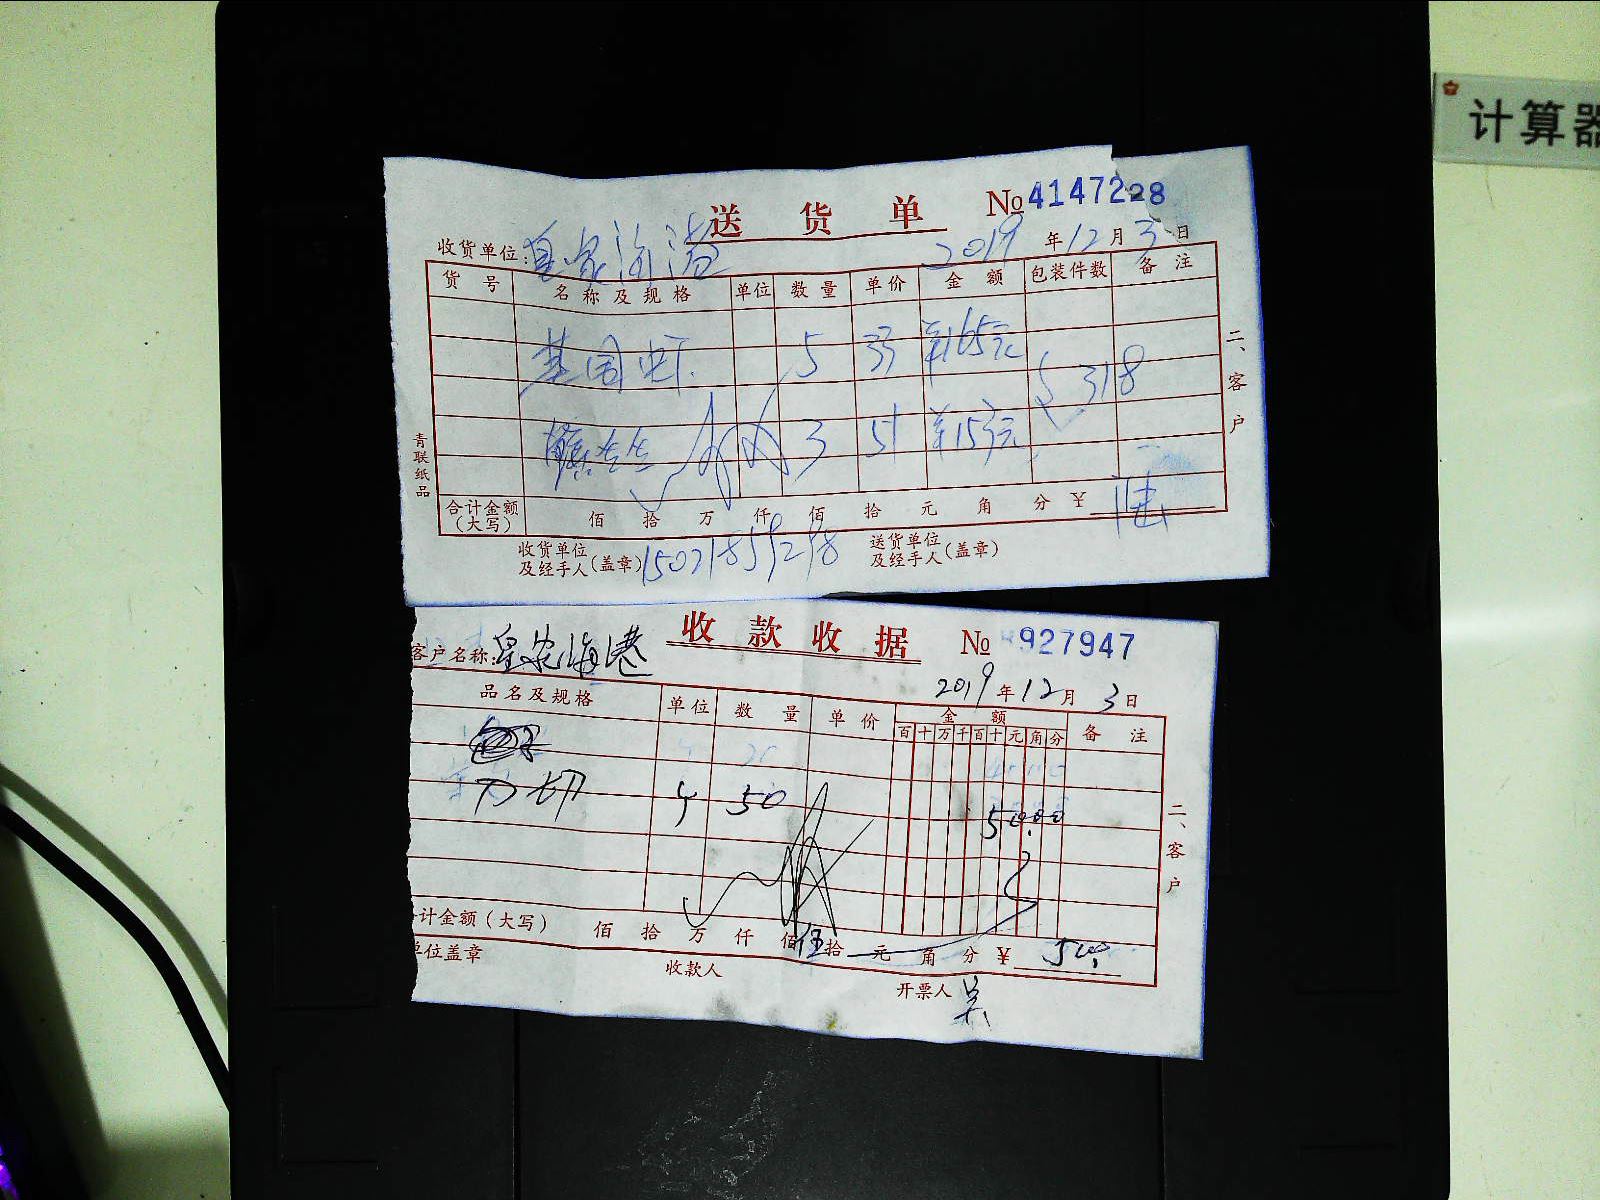 计算器
送货单 №4147228
收货单位:皇家海港 2019年12月3日
货号 名称及规格 单位 数量 单价 金额 包装件数 备注
基围虾 5 33 ¥165元
318
3 51 ¥153元
合计金额(大写) 佰 拾 万 仟 佰 拾 元 角 分 ¥
收货单位及经手人(盖章)15071859298 送货单位及经手人(盖章)
二、客户
青联纸品
收款收据 № 927947
客户名称:皇家海港
2019年12月3日
品名及规格 单位 数量 单价 金额 备注
百十万千百十元角分
刀切 50 5000
计金额(大写) 佰 拾 万 仟 佰 伍拾 元 角 分 ¥ 50
单位盖章 收款人 开票人 吴
二、客户